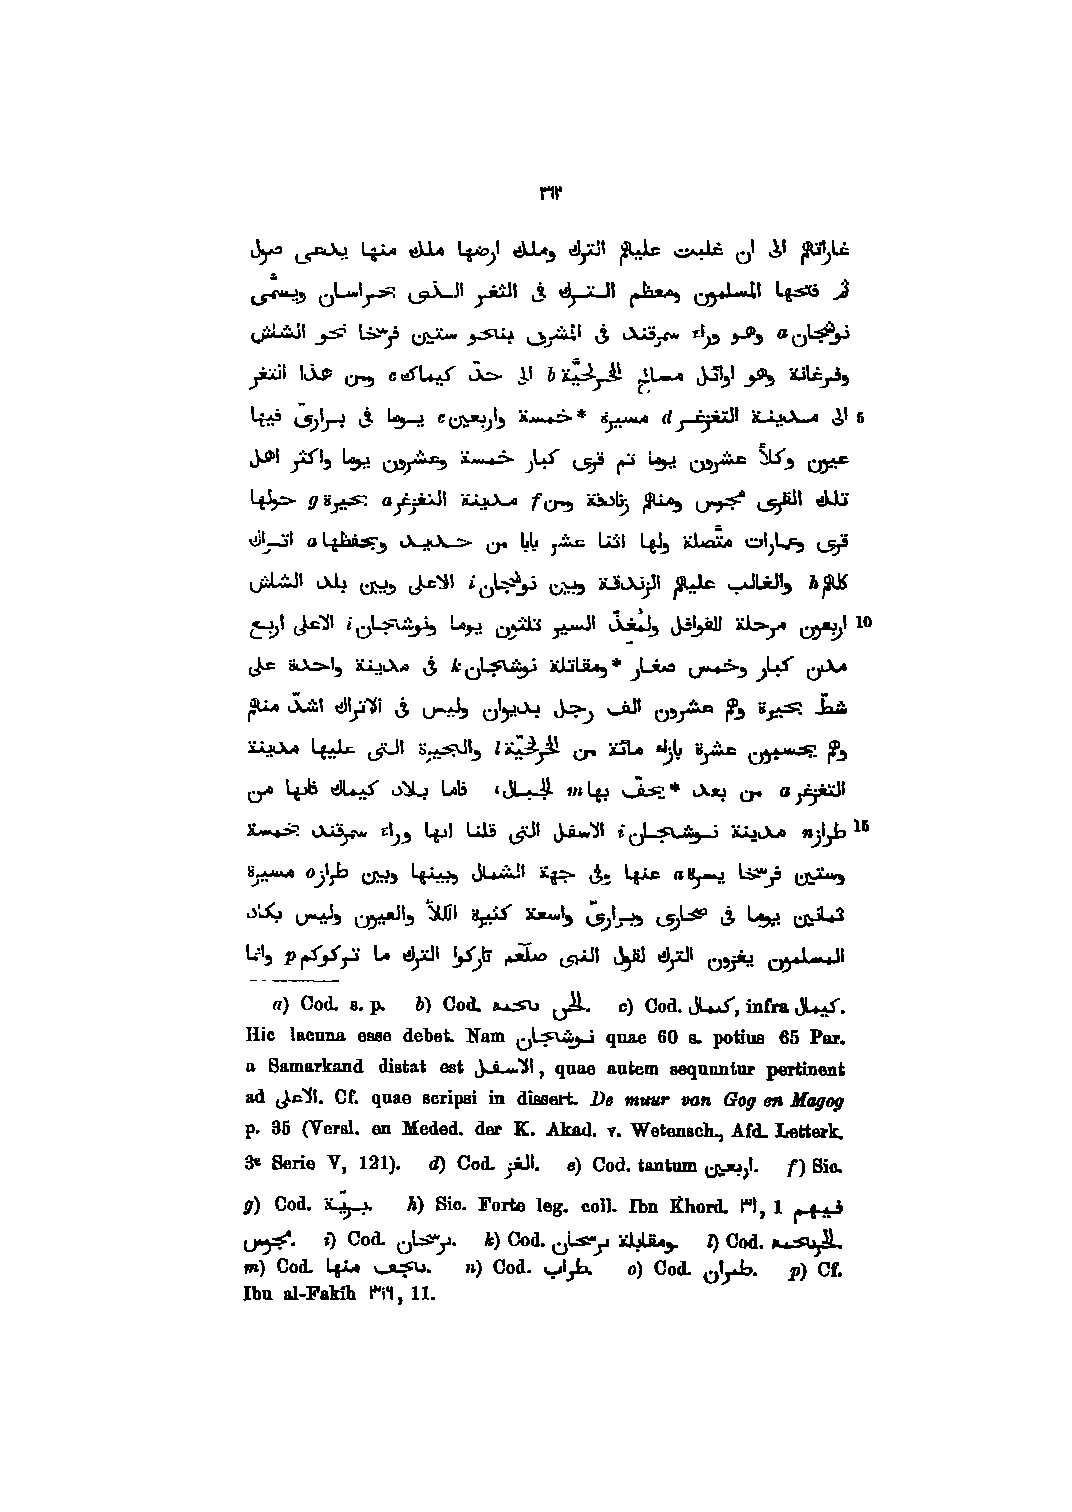 ٢٦٢
غاراتهم الى ان غلبت عليهم الترك وملك ارضها ملك منها يدعى صول
ثم فتحها المسلمون ومعظم الترك فى الثغر الذى بخراسان ويسمّى
نوشجان a وهو وراء سمرقند فى المشرق بنحو ستين فرسخا نحو الشاش
وفرغانة وهو اوائل مسالح الخرلخيّة b الى حدّ كيماك c ومن هذا الثغر
الى مدينة التغزغر d مسيرة *خمسة واربعين e يوما فى برارىّ فيها 5
عيون وكلأ عشرون يوما ثم قرى كبار خمسة وعشرون يوما واكثر اهل
تلك القرى مجوس ومنهم زنادقة ومن f مدينة التغزغر a بحيرة g حولها
قرى وعمارات متّصلة ولها اثنا عشر بابا من حديد ويحفظها a اتراك
كلهم h والغالب عليهم الزندقة وبين نوشجان i الاعلى وبين بلد الشاش
اربعون مرحلة للقوافل ولمُغذّ السير ثلثون يوما ونوشجان i الاعلى اربع 10
مدن كبار وخمس صغار *ومقاتلة نوشجان k فى مدينة واحدة على
شطّ بحيرة وهم عشرون الف رجل بديوان وليس فى الاتراك اشدّ منهم
وهم يحسبون عشرة بازاء مائة من الخرلخيّة l والبحيرة التى عليها مدينة
التغزغر a من بعد *يحفّ بها m الجبال، فاما بلاد كيماك فانها من
طراز n مدينة نوشجان i الاسفل التى قلنا انها وراء سمرقند خمسة 15
وستين فرسخا يسرة a عنها وفى جهة الشمال وبينها وبين طراز o مسيرة
ثمانين يوما فى صحارى وبرارىّ واسعة كثيرة الكلأ والعيون وليس يكاد
المسلمون يغزون الترك لقول النبى صلّعم تاركوا الترك ما تركوكم p وانما
a) Cod. s. p. b) Cod. c) Cod. كمال, infra كيمال.
Hic lacuna esse debet. Nam نوشجان quae 60 s. potius 65 Par.
a Samarkand distat est الاسفل, quae autem sequuntur pertinent
ad الاعلى. Cf. quae scripsi in dissert. De muur van Gog en Magog
p. 35 (Versl. en Meded. der K. Akad. v. Wetensch., Afd. Letterk.
3e Serie V, 121). d) Cod. الغز. e) Cod. tantum اربعين. f) Sic.
g) Cod. بريّة. h) Sic. Forte leg. coll. Ibn Khord. ٣١, 1 فيهم
مجوس. i) Cod. برسخان. k) Cod. ومقابلة برسخان. l) Cod.
m) Cod. منها. n) Cod. طراب. o) Cod. طران. p) Cf.
Ibn al-Fakîh ٣١٦, 11.